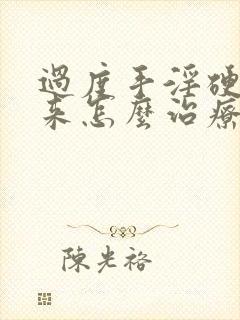 過度手淫硬
來怎麼治療
陳光裕